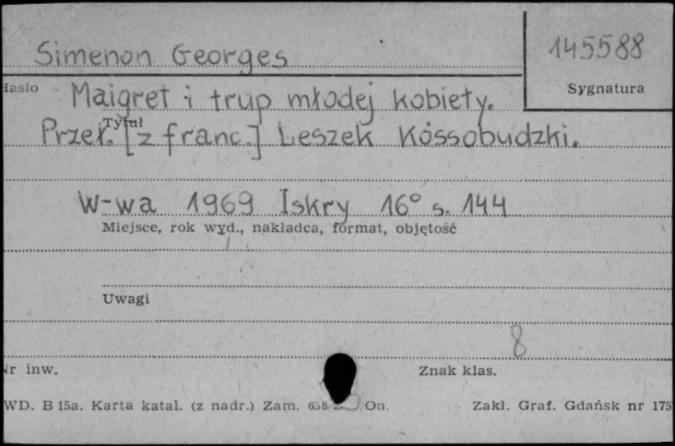 Simenon Georges
145588
Hasło
Sygnatura
Maigret i trup młodej kobiety.
Tytuł
Przeł. [z franc.] Leszek Kossobudzki.
W-wa 1969 Iskry 16° s. 144
Miejsce, rok wyd., nakładca, format, objętość
Uwagi
8
Nr inw.
Znak klas.
WD. B 15a. Karta katal. (z nadr.) Zam. On.
Zakł. Graf. Gdańsk nr 175